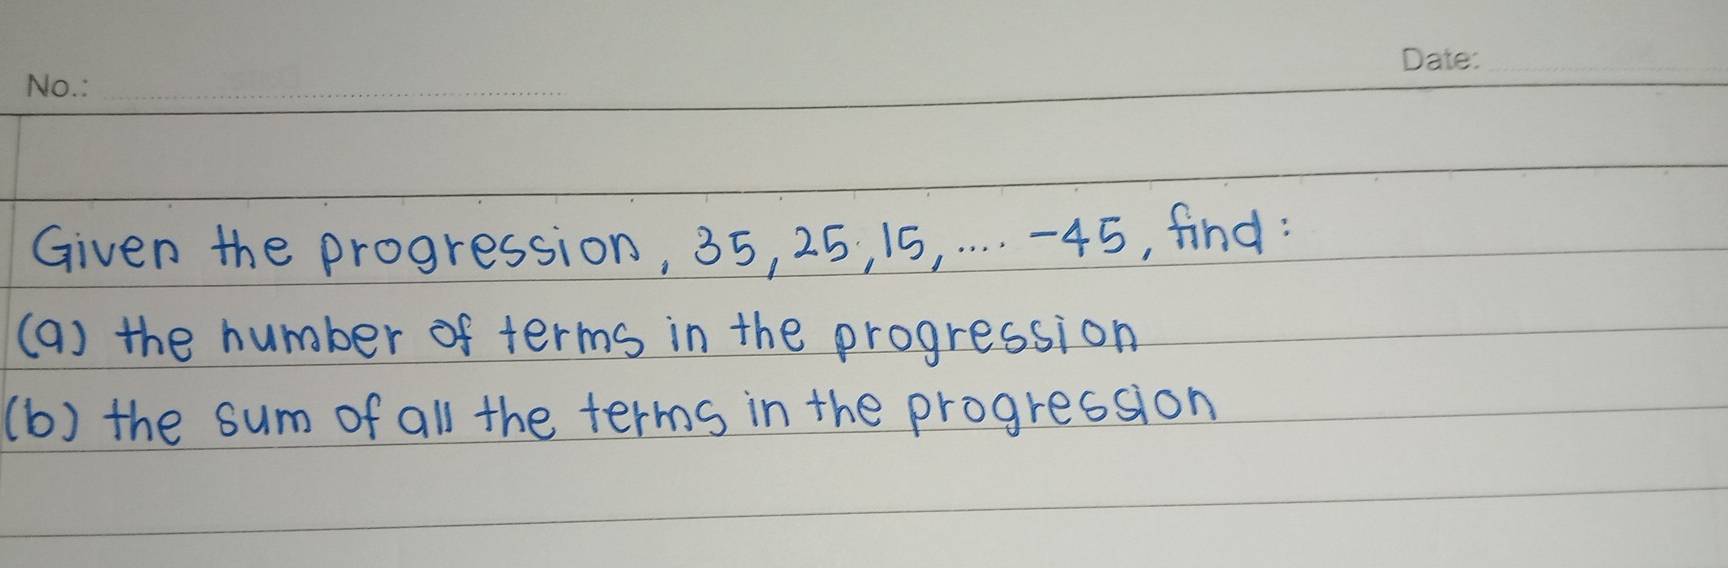 No.:
Date:
Given the progression, 35, 25, 15, .... -45, find:
(a) the number of terms in the progression
(b) the sum of all the terms in the progression